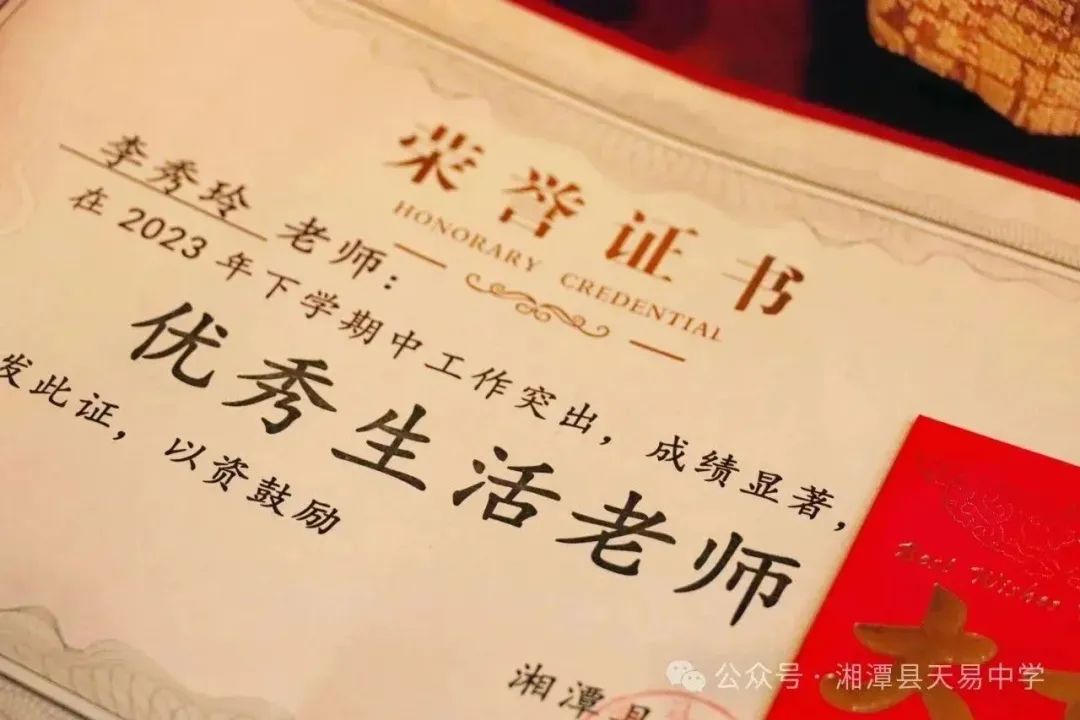 荣誉证书
HONORARY CREDENTIAL
李秀玲 老师：
在 2023 年下学期中工作突出，成绩显著，
优秀生活老师
发此证，以资鼓励
湘潭县
Best Wishes
大
公众号 · 湘潭县天易中学